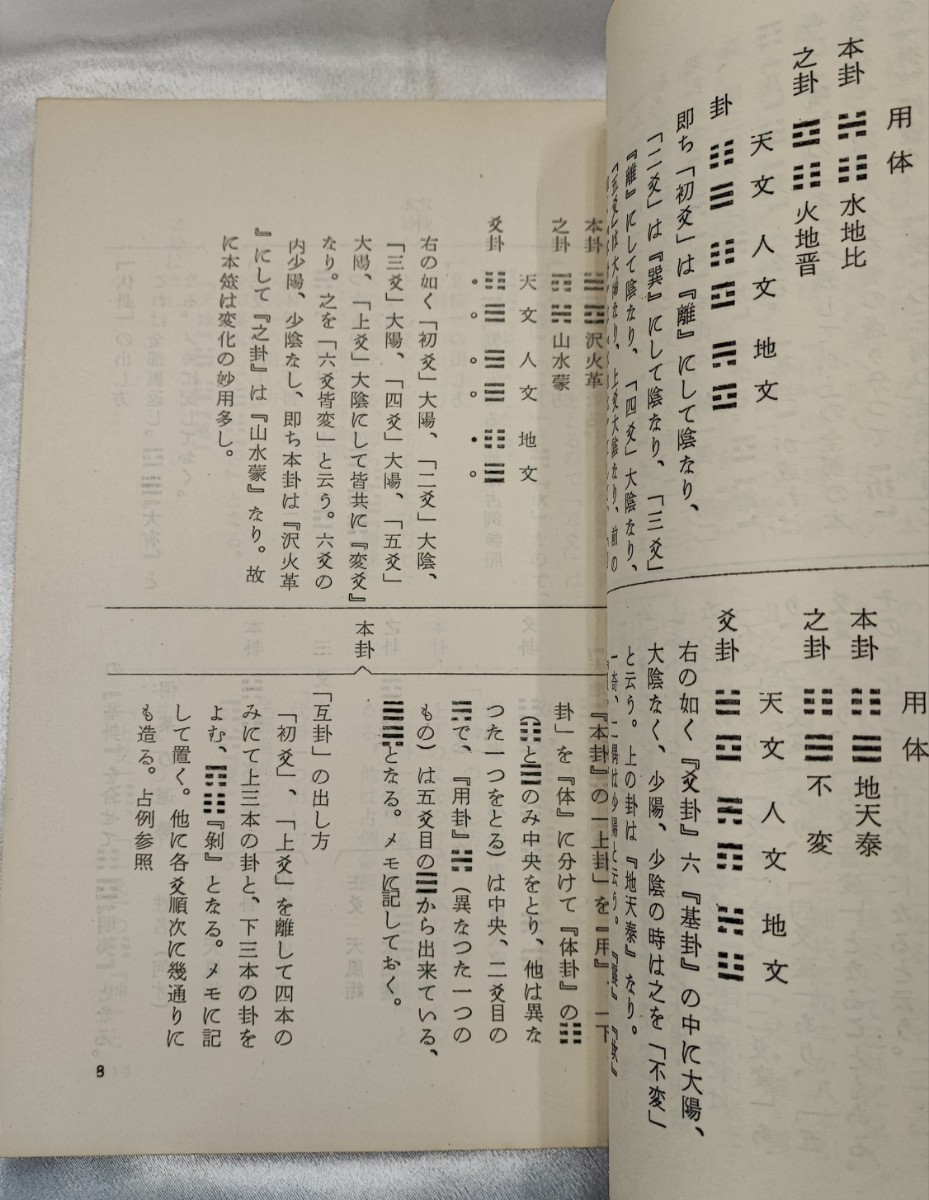 用体
本卦 水地比
之卦 火地晋
天文 人文 地文
卦
即ち「初爻」は『離』にして陰なり、
「二爻」は『巽』にして陰なり、「三爻」
『離』にして陰なり、「四爻」大陰なり、
「五爻」は大陽なり、上爻大陰なり、前の
用体
本卦 地天泰
之卦 不変
天文 人文 地文
爻卦
右の如く『爻卦』六『基卦』の中に大陽、
大陰なく、少陽、少陰の時は之を「不変」
と云う。上の卦は『地天泰』なり。
一奇、二偶は少陽と云う。
本卦 沢火革
之卦 山水蒙
天文 人文 地文
爻卦
右の如く「初爻」大陽、「二爻」大陰、
「三爻」大陽、「四爻」大陽、「五爻」
大陽、「上爻」大陰にして皆共に『変爻』
なり。之を「六爻皆変」と云う。六爻の
内少陽、少陰なし、即ち本卦は『沢火革
』にして『之卦』は『山水蒙』なり。故
に本筮は変化の妙用多し。
本卦
『本卦』の「上卦」を『用』「下
卦」を『体』に分けて『体卦』の☷
(☷と☰のみ中央をとり、他は異な
つた一つをとる)は中央、二爻目の
で、『用卦』(異なつた一つの
もの)は五爻目の☰から出来ている、
となる。メモに記しておく。
「互卦」の出し方
「初爻」、「上爻」を離して四本の
みにて上三本の卦と、下三本の卦を
よむ、☶☷『剝』となる。メモに記
して置く。他に各爻順次に幾通りに
も造る。占例参照
8